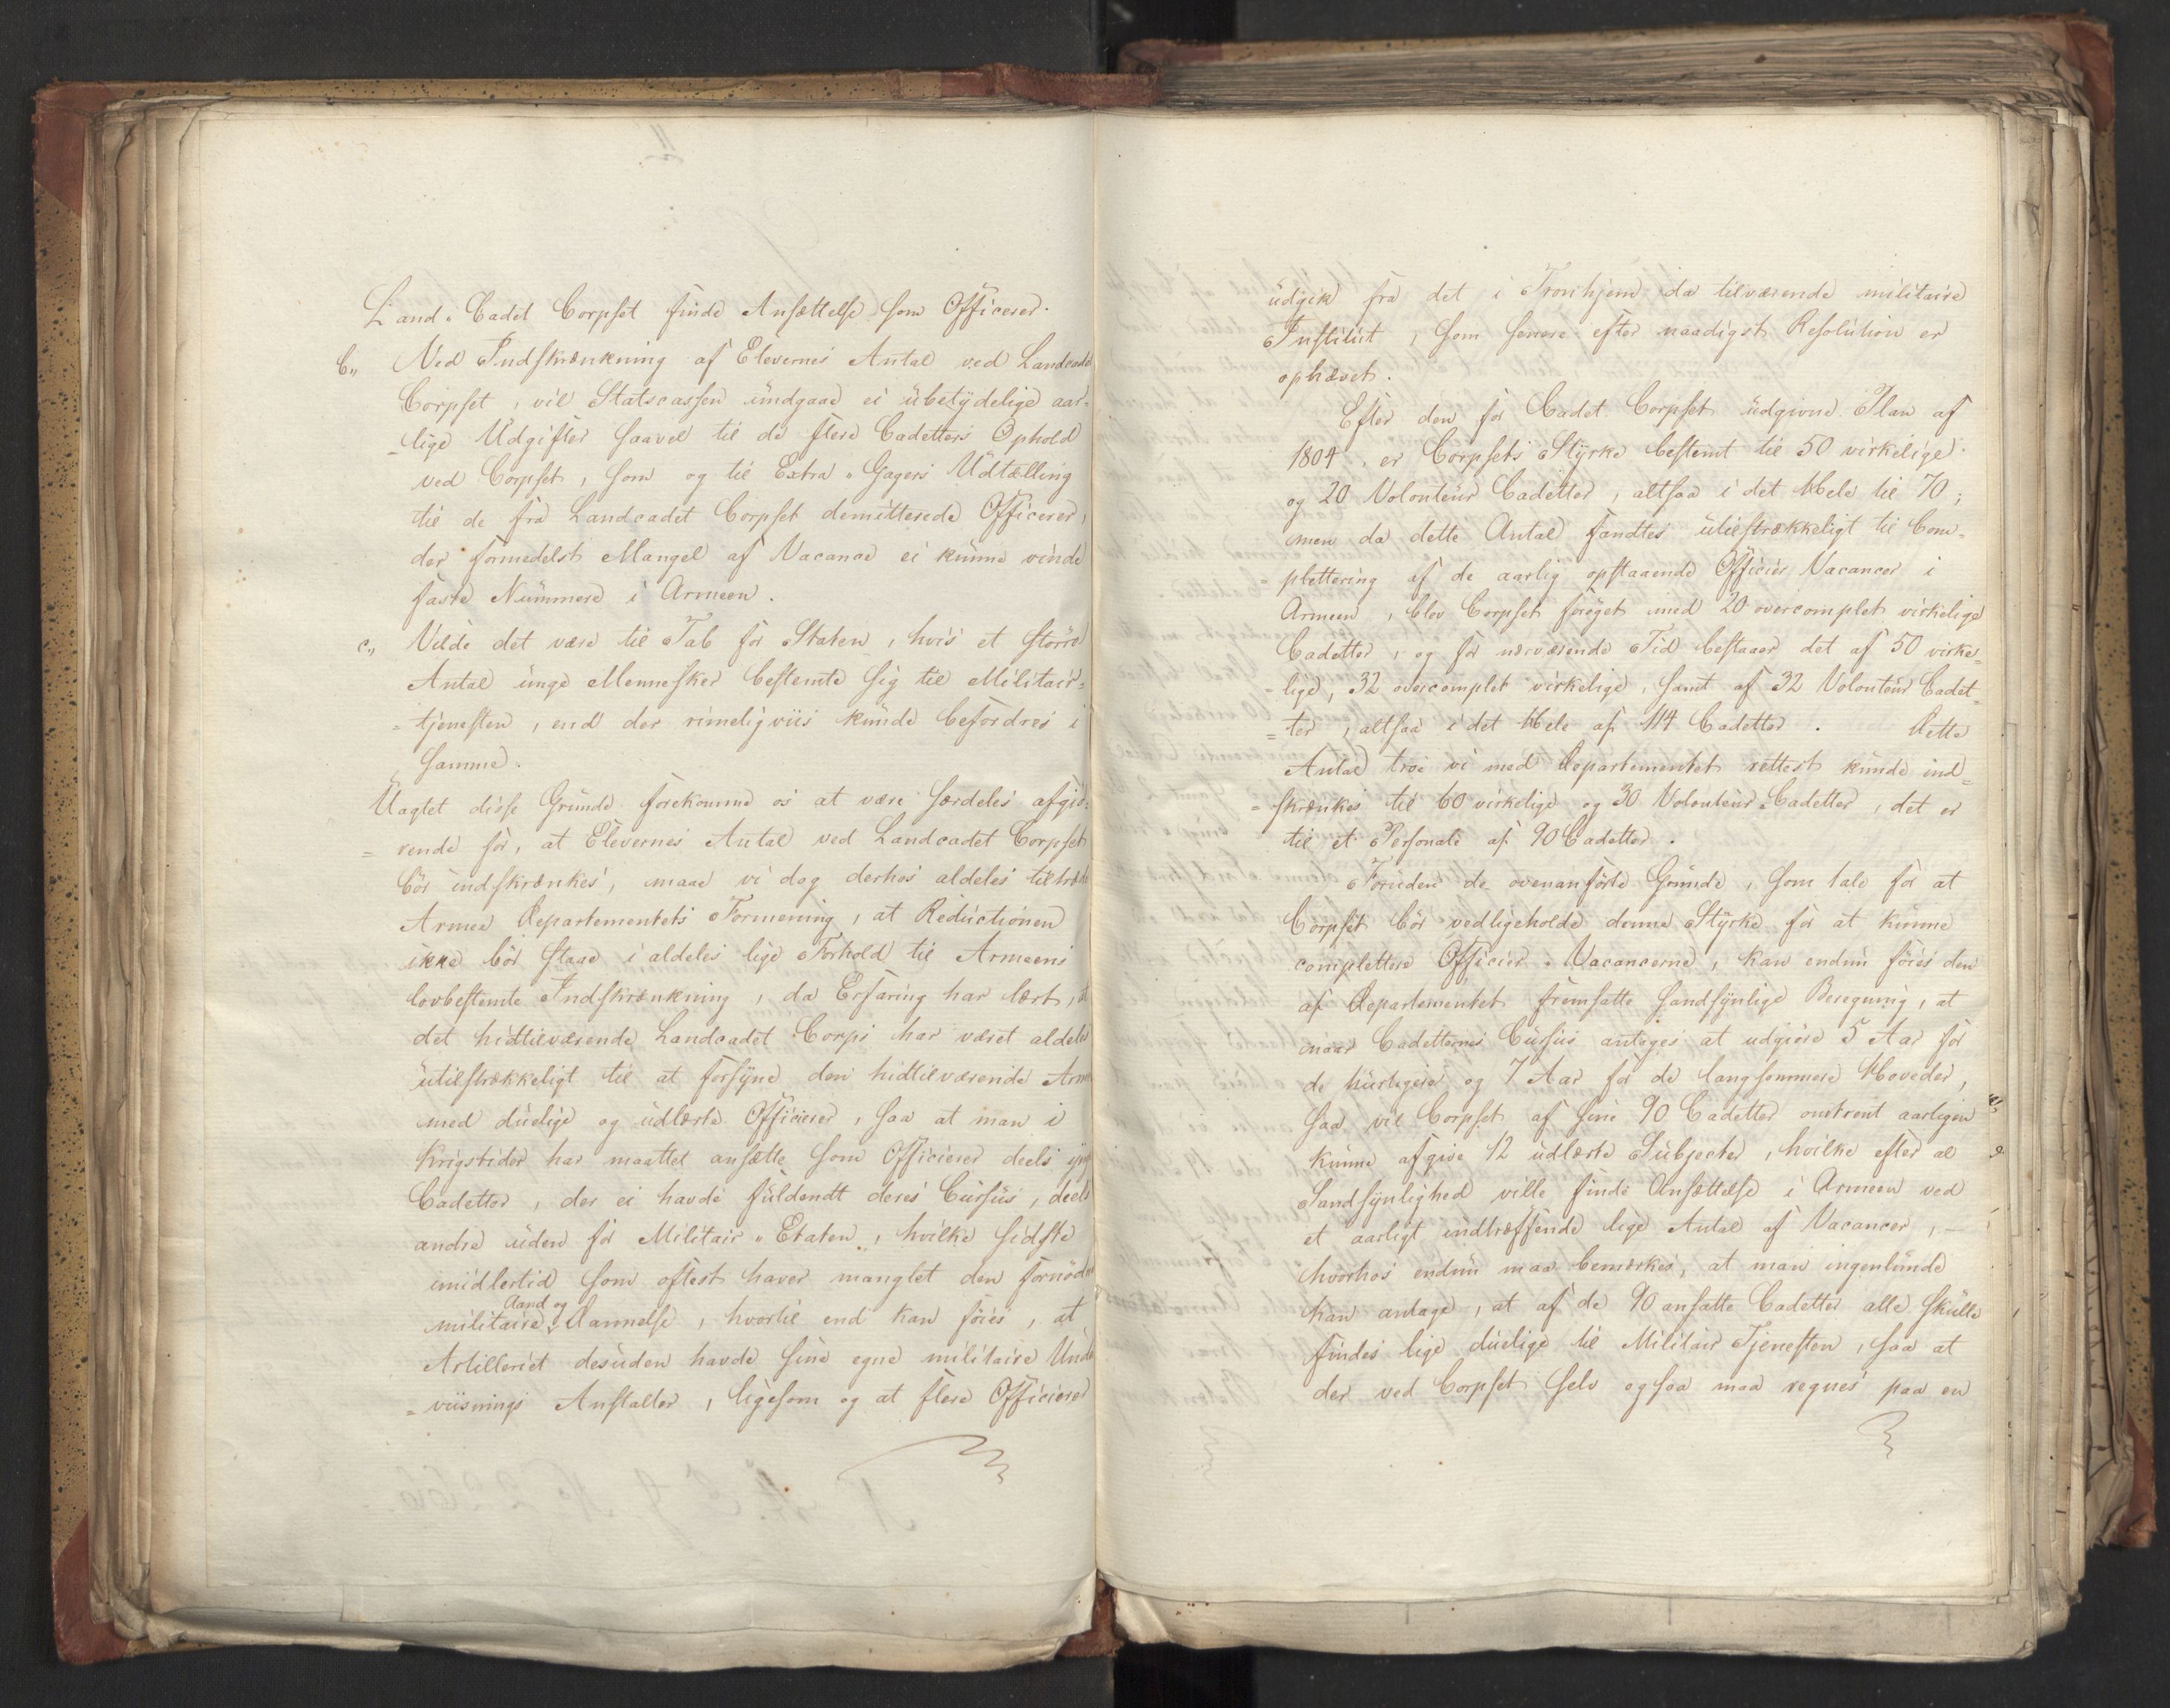 Land-Cadet Corpset finde Ansættelse som Officerer.
b,, Ved Indskrænkning af Elevernes Antal ved Landcadet
Corpset, vil Statscassen undgaae ei ubetydelige aar-
-lige Udgifter saavel til de flere Cadetters Ophold
ved Corpset, som og til Extra-Gagers Udtælling
til de fra Landcadet Corpset demitterede Officerer,
der formedelst Mangel af Vacance ei kunne vinde
faste Nummere i Armeen.
c,, Vilde det være til Tab for Staten, hvis et større
Antal unge Mennesker bestemte sig til Militair-
-tjenesten, end der rimeligviis kunde befordres i
samme.
Uagtet disse Grunde forekomme os at være særdeles afgiø-
-rende for, at Elevernes Antal ved Landcadet Corpset
bör indskrænkes, maae vi dog derhos aldeles tiltræde
Armee Departementets Formening, at Reductionen
ikke bör staae i aldeles lige Forhold til Armeens
lovbestemte Indskrænkning, da Erfaring har lært, at
det hidtilværende Landcadet Corps har været aldeles
utilstrækkeligt til at forsyne den hidtilværende Armee
med duelige og udlærte Officierer, saa at man i
Krigstider har maattet ansætte som Officierer deels yngre
Cadetter, der ei havde fuldendt deres Cursus, deels
andre uden for Militair-Etaten, hvilke sidste
imidlertid som oftest haver manglet den fornødne
militaire Aand og Dannelse, hvortil end kan föies, at
Artilleriet desuden havde sine egne militaire Under
-viisnings Anstalter, ligesom og at flere Officierer
udgik fra det i Tronhjem da tilværende militaire
Institut, som senere efter naadigst Resolution er
ophævet.
Efter den for Cadet Corpset udgivne Plan af
1804, er Corpsets Styrke bestemt til 50 virkelige
og 20 Volonteur Cadetter, altsaa i det Hele til 70;
men da dette Antal fandtes utilstrækkeligt til Com-
-plettering af de aarlig opstaaende Officier Vacancer i
Armeen, blev Corpset forøget med 20 overcomplet virkelige
Cadetter, og for nærværende Tid bestaaer det af 50 virke-
-lige, 32 overcomplet virkelige, samt af 32 Volonteur Cadet-
-ter, altsaa i det Hele af 114 Cadetter. Dette
Antal troe vi med Departementet rettest kunde ind-
-skrænkes til 60 virkelige og 30 Volonteur-Cadetter, det er
til et Personale af 90 Cadetter.
Foruden de ovenanförte Grunde, som tale for at
Corpset bör vedligeholde denne Styrke for at kunne
complettere Officier-Vacancerne, kan endnu föies den
af Departementet fremsatte sandsynlige Beregning, at
naar Cadetternes Cursus antages at udgiöre 5 Aar for
de hurtigere og 7 Aar for de langsommere Hoveder,
saa vil Corpset af sine 90 Cadetter omtrent aarligen
kunne afgive 12 udlærte Subjecter, hvilke efter al
Sandsynlighed ville finde Ansættelse i Armeen ved
et aarligt indtræffende lige Antal af Vacancer, —
hvorhos endnu maa bemærkes, at man ingenlunde
kan antage, at af de 90 ansatte Cadetter alle skulle
findes lige duelige til Militair Tjenesten, saa at
der ved Corpset selv ogsaa maa regnes paa en